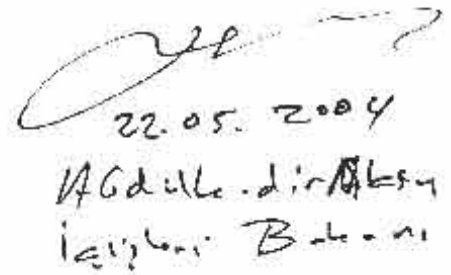 22.05.2004
Abdülkadir Aksu
İçişleri Bakanı